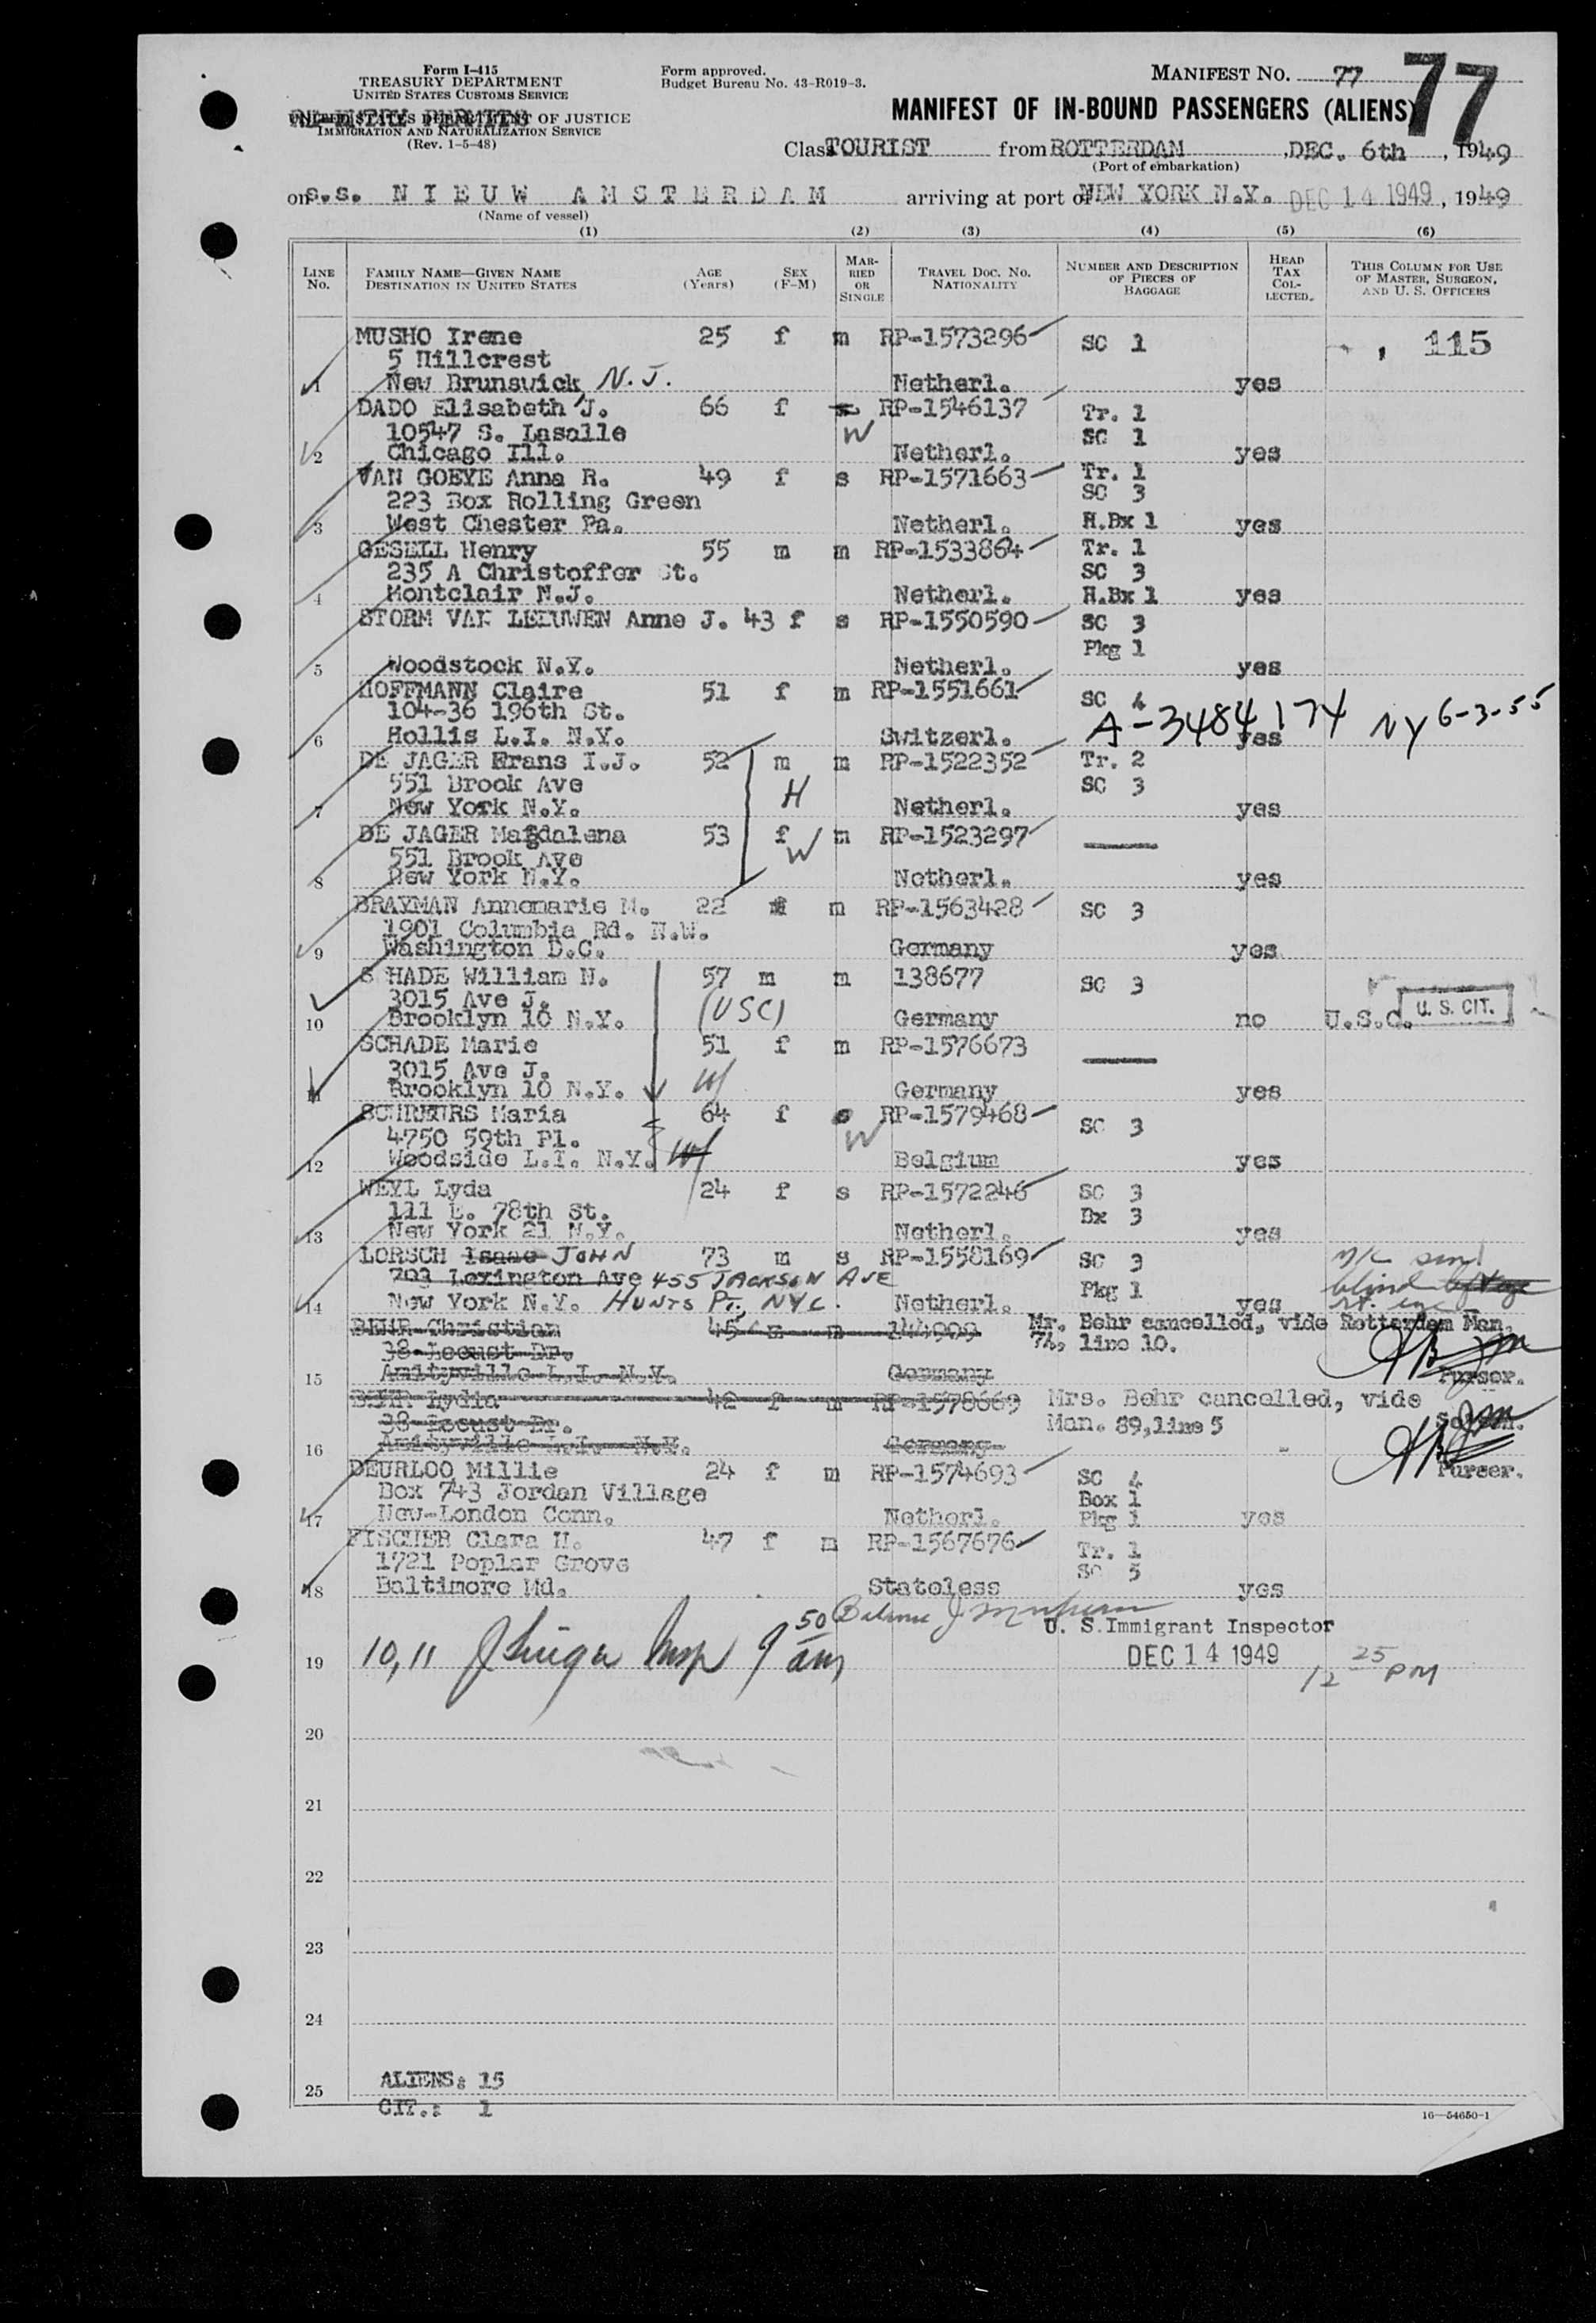 Form I-415
TREASURY DEPARTMENT
UNITED STATES CUSTOMS SERVICE
UNITED STATES DEPARTMENT OF JUSTICE
IMMIGRATION AND NATURALIZATION SERVICE
(Rev. 1-5-48)
Form approved.
Budget Bureau No. 43-R019-3.
MANIFEST NO. 77
77
MANIFEST OF IN-BOUND PASSENGERS (ALIENS)
Class TOURIST from ROTTERDAM, DEC. 6th, 1949
(Port of embarkation)
on s.s. NIEUW AMSTERDAM arriving at port of NEW YORK N.Y. DEC 14 1949, 1949
(Name of vessel)
(1) (2) (3) (4) (5) (6)
LINE No. FAMILY NAME—GIVEN NAME DESTINATION IN UNITED STATES AGE (Years) SEX (F-M) MARRIED OR SINGLE TRAVEL DOC. NO. NATIONALITY NUMBER AND DESCRIPTION OF PIECES OF BAGGAGE HEAD TAX COLLECTED. THIS COLUMN FOR USE OF MASTER, SURGEON, AND U. S. OFFICERS
MUSHO Irene 25 f m RP-1573296 SC 1 115
5 Hillcrest
1 New Brunswick N.J. Netherl. yes
DADO Elisabeth J. 66 f W RP-1546137 Tr. 1
10547 S. Lasalle SC 1
2 Chicago Ill. Netherl. yes
VAN GOEYE Anna R. 49 f s RP-1571663 Tr. 1
223 Box Rolling Green SC 3
3 West Chester Pa. Netherl. H.Bx 1 yes
GESELL Henry 55 m m RP-1533864 Tr. 1
235 A Christoffer St. SC 3
4 Montclair N.J. Netherl. H.Bx 1 yes
STORM VAN LEEUWEN Anne J. 43 f s RP-1550590 SC 3
Pkg 1
5 Woodstock N.Y. Netherl. yes
HOFFMANN Claire 51 f m RP-1551661 SC 4
104-36 196th St. A-3484174 NY 6-3-55
6 Hollis L.I. N.Y. Switzerl. yes
DE JAGER Frans I.J. 52 m m RP-1522352 Tr. 2
551 Brook Ave H SC 3
7 New York N.Y. Netherl. yes
DE JAGER Magdalena 53 f m RP-1523297
551 Brook Ave W
8 New York N.Y. Netherl. yes
BRAYMAN Annemarie M. 22 f m RP-1563428 SC 3
1901 Columbia Rd. N.W.
9 Washington D.C. Germany yes
S HADE William N. 57 m m 138677 SC 3
3015 Ave J. (USC)
10 Brooklyn 10 N.Y. Germany no U.S.C. U. S. CIT.
SCHADE Marie 51 f m RP-1576673
3015 Ave J. W
11 Brooklyn 10 N.Y. Germany yes
SCHREURS Maria 64 f s RP-1579468 SC 3
4750 59th Pl. W
12 Woodside L.I. N.Y. Belgium yes
WEYL Lyda 24 f s RP-1572246 SC 3
111 E. 78th St. Bx 3
13 New York 21 N.Y. Netherl. yes
LORSCH Isaac JOHN 73 m s RP-1558169 SC 3
793 Lexington Ave 455 JACKSON AVE Pkg 1 blind
14 New York N.Y. HUNTS Pt., NYC. Netherl. yes rt. eye
BEHR Christian 45 m m 144909 Mr. Behr cancelled, vide Rotterdam Man.
38 Locust Dr. 74, line 10.
15 Amityville L.I. N.Y. Germany Purser.
BEHR Lydia 42 f m RP-1578669 Mrs. Behr cancelled, vide
38 Locust Dr. Man. 89, line 5
16 Amityville L.I. N.Y. Germany Purser.
DEURLOO Millie 24 f m RP-1574693 SC 4
Box 743 Jordan Village Box 1
17 New-London Conn. Netherl. Pkg 1 yes
FISCHER Clara H. 47 f m RP-1567676 Tr. 1
1721 Poplar Grove SC 5
18 Baltimore Md. Stateless yes
U. S. Immigrant Inspector
19 10, 11 Insp 9 50 am DEC 14 1949 12 25 PM
20
21
22
23
24
25 ALIENS: 15
CIT.: 1
16—54650-1